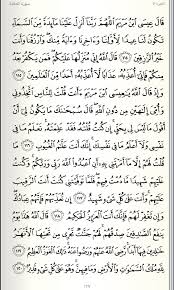 قَالَ عِيسَى ٱبْنُ مَرْيَمَ ٱللَّهُمَّ رَبَّنَآ أَنزِلْ عَلَيْنَا مَآئِدَةً مِّنَ ٱلسَّمَآءِ
تَكُونُ لَنَا عِيدًا لِّأَوَّلِنَا وَءَاخِرِنَا وَءَايَةً مِّنكَ وَٱرْزُقْنَا وَأَنتَ
خَيْرُ ٱلرَّٰزِقِينَ ١١٤ قَالَ ٱللَّهُ إِنِّى مُنَزِّلُهَا عَلَيْكُمْ فَمَن يَكْفُرْ بَعْدُ
مِنكُمْ فَإِنِّىٓ أُعَذِّبُهُۥ عَذَابًا لَّآ أُعَذِّبُهُۥٓ أَحَدًا مِّنَ ٱلْعَٰلَمِينَ ١١٥
وَإِذْ قَالَ ٱللَّهُ يَٰعِيسَى ٱبْنَ مَرْيَمَ ءَأَنتَ قُلْتَ لِلنَّاسِ ٱتَّخِذُونِى
وَأُمِّىَ إِلَٰهَيْنِ مِن دُونِ ٱللَّهِ قَالَ سُبْحَٰنَكَ مَا يَكُونُ لِىٓ أَنْ
أَقُولَ مَا لَيْسَ لِى بِحَقٍّ إِن كُنتُ قُلْتُهُۥ فَقَدْ عَلِمْتَهُۥ تَعْلَمُ مَا فِى
نَفْسِى وَلَآ أَعْلَمُ مَا فِى نَفْسِكَ إِنَّكَ أَنتَ عَلَّٰمُ ٱلْغُيُوبِ ١١٦
مَا قُلْتُ لَهُمْ إِلَّا مَآ أَمَرْتَنِى بِهِۦٓ أَنِ ٱعْبُدُوا۟ ٱللَّهَ رَبِّى وَرَبَّكُمْ وَكُنتُ
عَلَيْهِمْ شَهِيدًا مَّا دُمْتُ فِيهِمْ فَلَمَّا تَوَفَّيْتَنِى كُنتَ أَنتَ ٱلرَّقِيبَ
عَلَيْهِمْ وَأَنتَ عَلَىٰ كُلِّ شَىْءٍ شَهِيدٌ ١١٧ إِن تُعَذِّبْهُمْ فَإِنَّهُمْ عِبَادُكَ
وَإِن تَغْفِرْ لَهُمْ فَإِنَّكَ أَنتَ ٱلْعَزِيزُ ٱلْحَكِيمُ ١١٨ قَالَ ٱللَّهُ هَٰذَا يَوْمُ
يَنفَعُ ٱلصَّٰدِقِينَ صِدْقُهُمْ لَهُمْ جَنَّٰتٌ تَجْرِى مِن تَحْتِهَا ٱلْأَنْهَٰرُ
خَٰلِدِينَ فِيهَآ أَبَدًا رَّضِىَ ٱللَّهُ عَنْهُمْ وَرَضُوا۟ عَنْهُ ذَٰلِكَ ٱلْفَوْزُ ٱلْعَظِيمُ ١١٩
لِلَّهِ مُلْكُ ٱلسَّمَٰوَٰتِ وَٱلْأَرْضِ وَمَا فِيهِنَّ وَهُوَ عَلَىٰ كُلِّ شَىْءٍ قَدِيرٌۢ ١٢٠
١٢٧